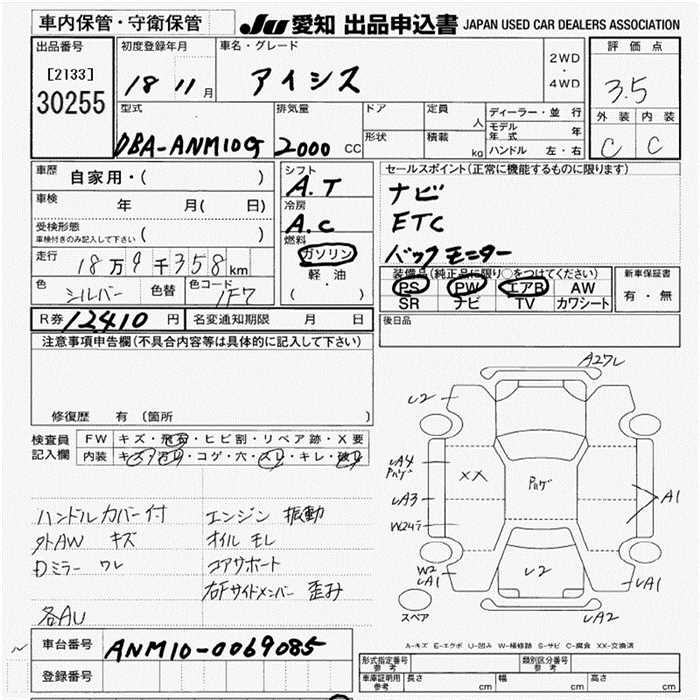 車内保管・守衛保管
JU 愛知 出品申込書 JAPAN USED CAR DEALERS ASSOCIATION
出品番号
[2133]
30255
初度登録年月
18 11月
車名・グレード
アイシス
2WD
・
4WD
評価点
3.5
外装 内装
C C
型式
DBA-ANM10G
排気量
2000 CC
ドア
形状
定員
人
積載
kg
ディーラー・並行
モデル年式 年
ハンドル 左・右
車歴
自家用・( )
車検
年 月( 日)
受検形態
車検付きのみ記入して下さい ( )
走行
18万9千358km
色
シルバー
色替
色コード
1F7
シフト
A.T
冷房
A.C
燃料
ガソリン
軽油
( ・ )
セールスポイント(正常に機能するものに限ります)
ナビ
ETC
バックモニター
装備品(純正品に限り○をつけてください)
PS PW エアB AW
SR ナビ TV カワシート
新車保証書
有・無
R券 12410 円 名変通知期限 月 日
後日品
注意事項申告欄(不具合内容等は具体的に記入して下さい)
修復歴 有 (箇所 )
検査員
記入欄
FW キズ・飛石・ヒビ割・リペア跡・X要
内装 キズ・汚れ・コゲ・穴・スレ・キレ・破れ
ハンドルカバー付 エンジン 振動
外AW キズ オイル モレ
Dミラー ワレ コアサポート
右Fサイドメンバー 歪み
各AU
車台番号 ANM10-0069085
登録番号
A27レ
レ2
レA4
ハゲ
レA3
W24
××
ハゲ
A1
W2
レA1
レ2
レA1
レA2
スペア
A-キズ E-エクボ U-凹み W-補修跡 S-サビ C-腐食 XX-交換済
形式指定番号
参考
類別区分番号
参考
車庫証明用
参考
長さ cm 幅 cm 高さ cm